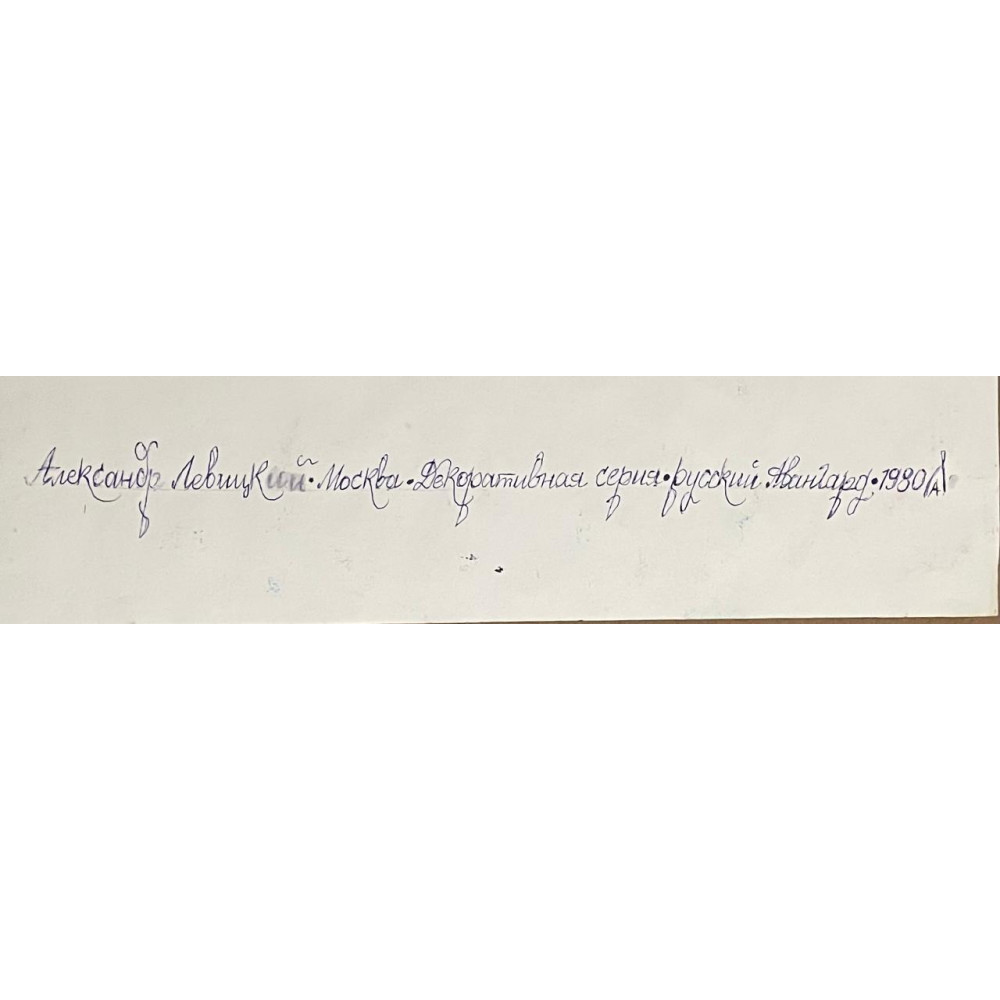 Александр Левицкий • Москва • Декоративная серия • русский Авангард • 1980